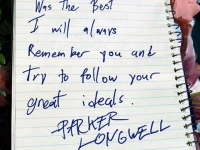 Was The Best
I will always
Remember you and
Try to follow your
great ideals.
PARKER
LONGWELL